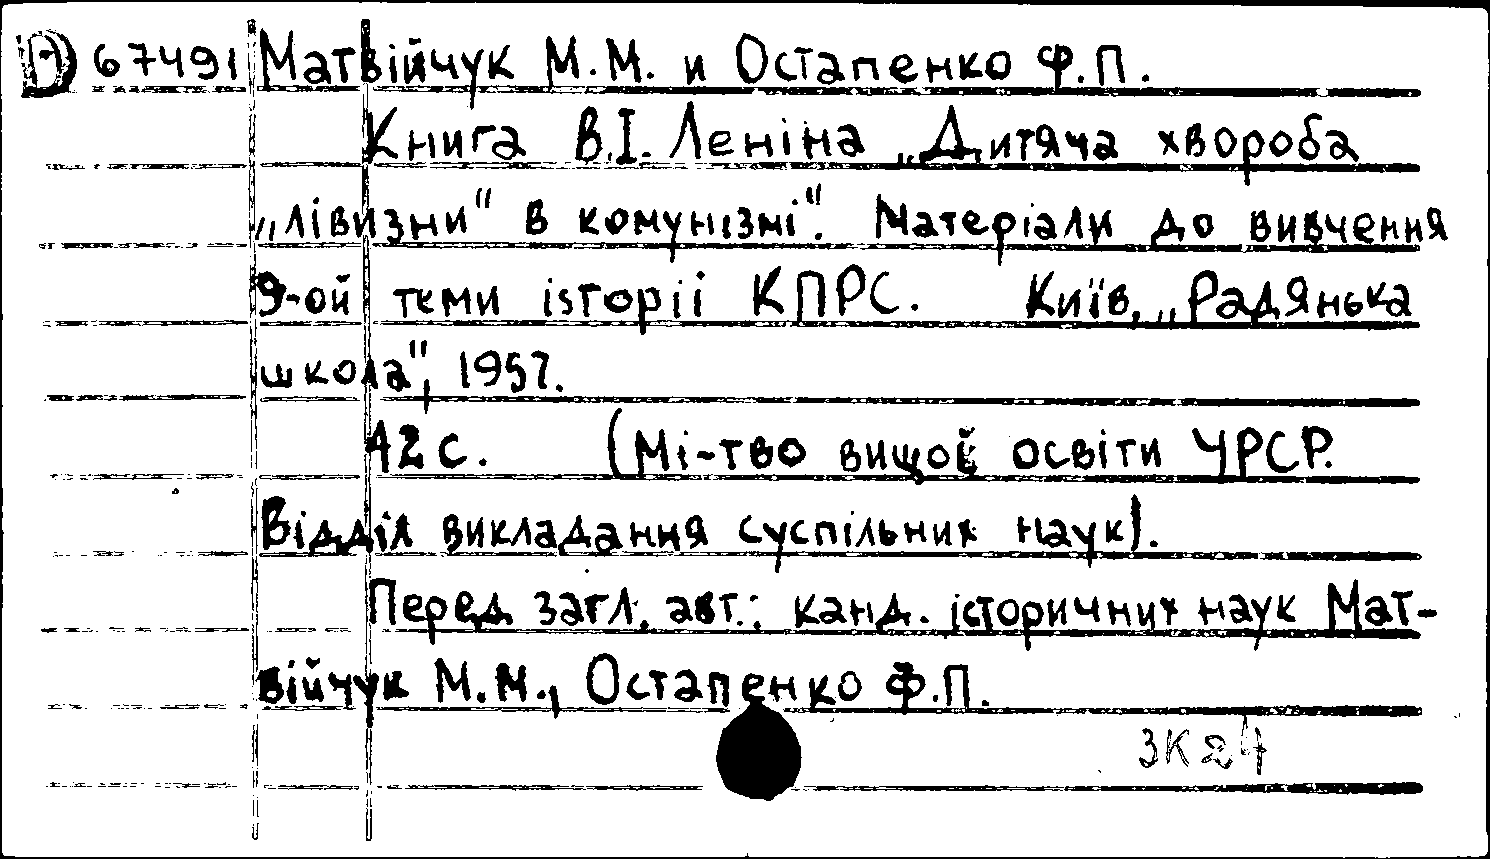 D 67491 Матвійчук М.М. и Остапенко Ф.П.
Книга В.І. Леніна „Дитяча хвороба
„лівизни" в комунізмі". Матеріали до вивчення
9-ой теми історіі КПРС. Київ, „Радянька
школа", 1957.
42 с. (Мі-тво вищої освіти УРСР.
Відділ викладання суспільних наук).
Перед загл. авт.: канд. історичних наук Мат-
війчук М.М., Остапенко Ф.П.
ЗК 24